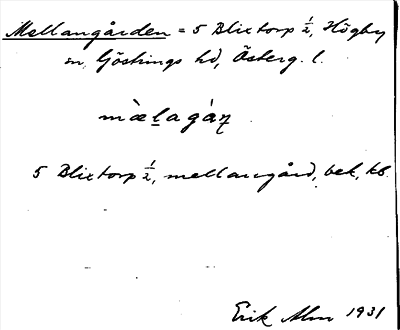 Mellangården = 5 Blixtorp ½, Högby
sn, Göstrings hd, Österg. l.
mæ̀lagáɳ
5 Blixtorp ½, mellangård, bek, kb.
Erik Alm 1931